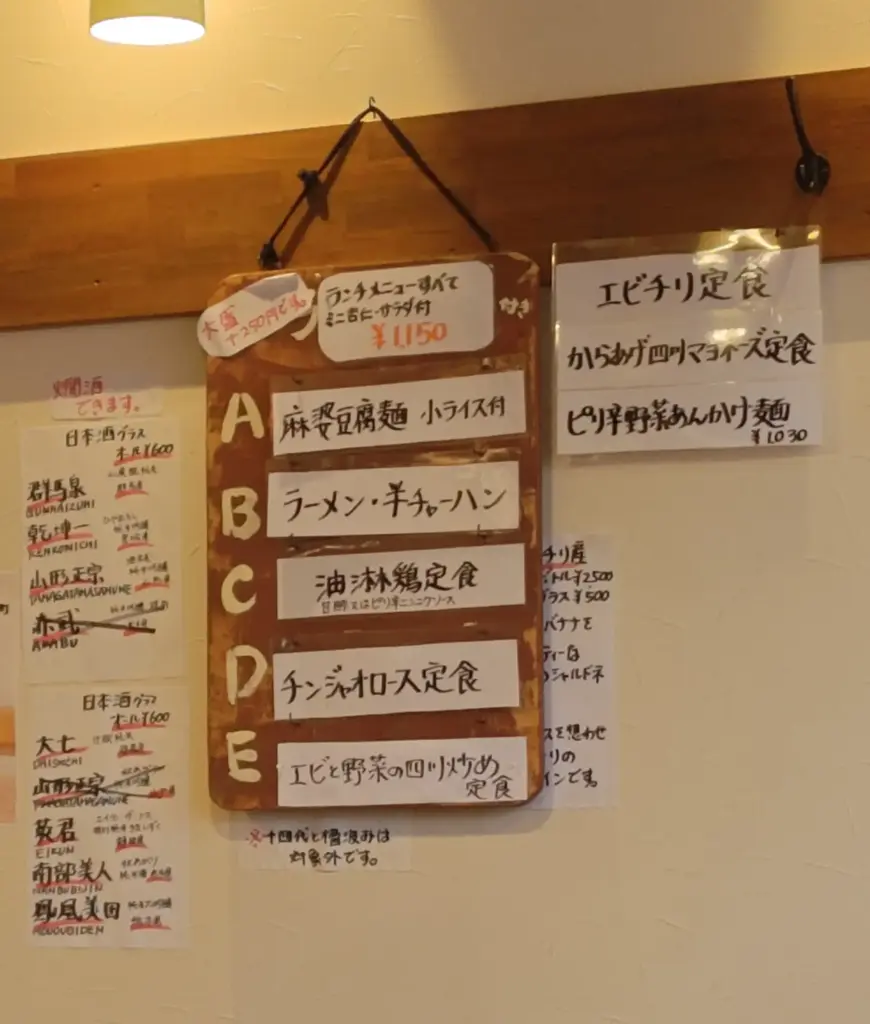 大盛
+250円です。
ランチメニューすべて
ミニ杏仁・サラダ付
¥1,150
付き
A 麻婆豆腐麺 小ライス付
B ラーメン・半チャーハン
C 油淋鶏定食
甘酢又はピリ辛ニンニクソース
D チンジャオロース定食
E エビと野菜の四川炒め
定食
※十四代と槽汲みは
対象外です。
エビチリ定食
からあげ四川マヨネーズ定食
ピリ辛野菜あんかけ麺
¥1030
燗酒
できます。
日本酒グラス
オール¥600
群馬泉
GUNMAIZUMI
乾坤一
KENKONICHI
山形正宗
YAMAGATAMASAMUNE
赤武
AKABU
日本酒グラス
オール¥600
大七
DAISHICHI
山形正宗
YAMAGATAMASAMUNE
榮君
EIKUN
南部美人
NANBUBIJIN
鳳凰美田
HOUOUBIDEN
チリ産
トル¥2500
グラス¥500
バナナを
ティーな
シャルドネ
スを想わせ
リの
インです。